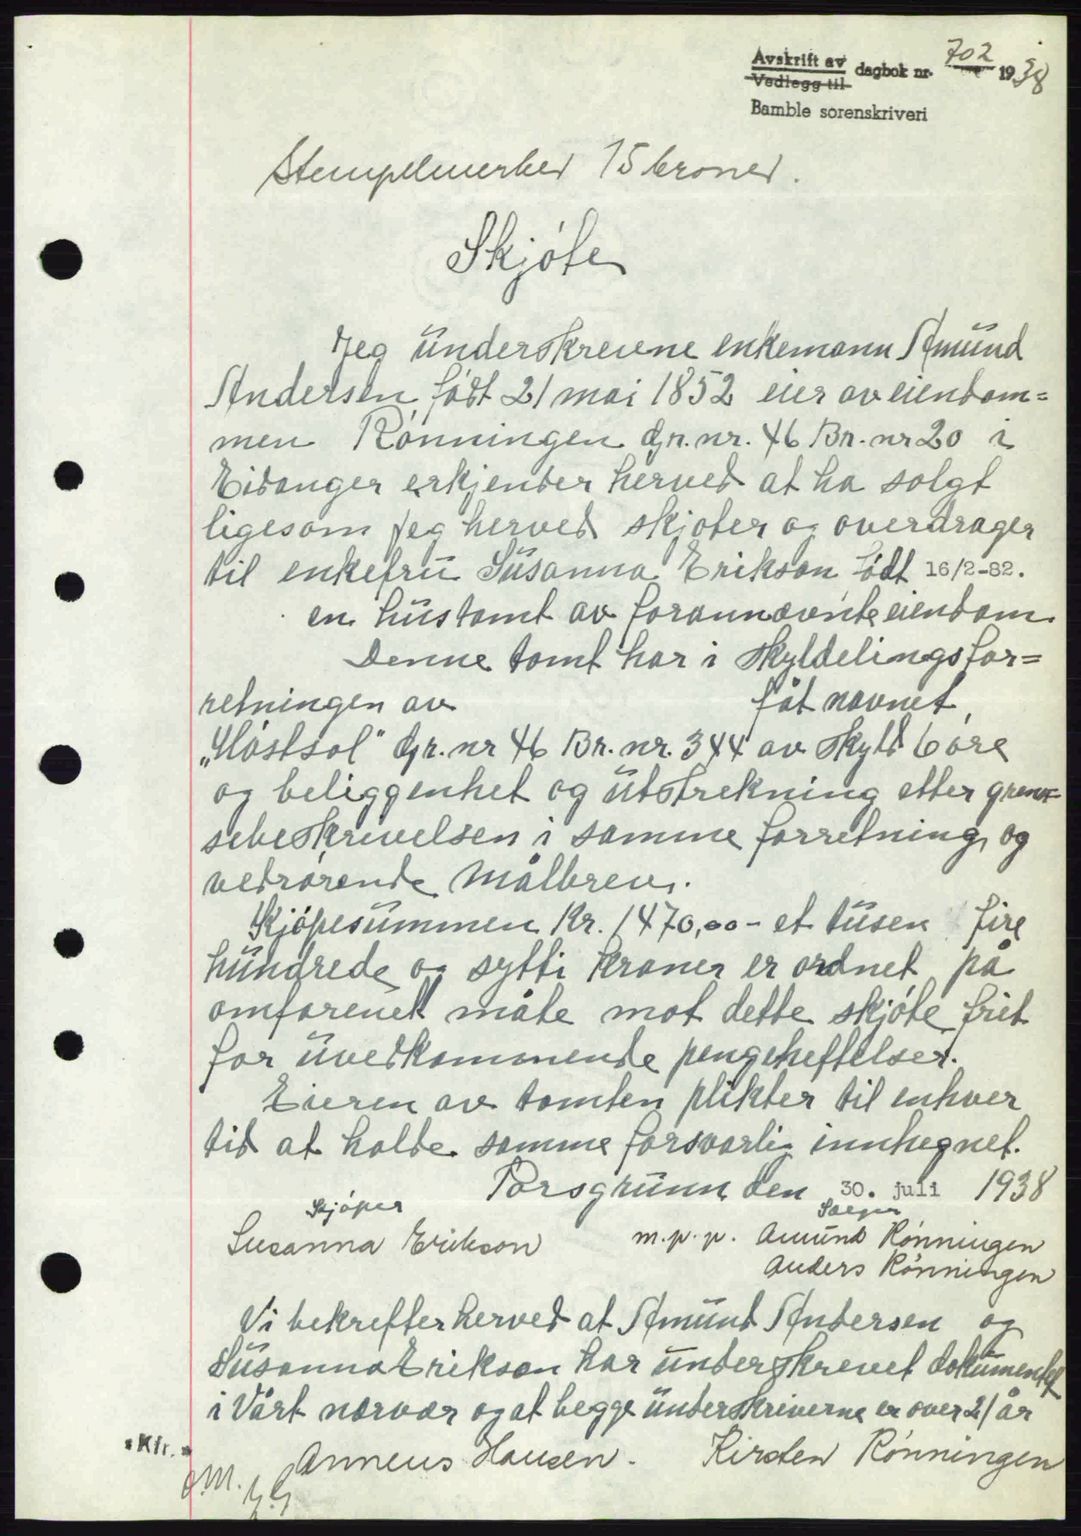 Avskrift av dagbok nr. 702 1938
Vedlegg til
Bamble sorenskriveri
Stempelmerker 15 kroner.
Skjöte
Jeg underskrevne enkemann Amund
Andersen født 21 mai 1852 eier av eiendom=
men Rönningen Gr. nr. 46 Br. nr 20 i
Eidanger erkjender herved at ha solgt
ligesom jeg herved skjöter og overdrager
til enkefru Susanna Erikson født 16/2-82.
en hustomt av forannævnte eiendom.
Denne tomt har i skyldelingsfor=
retningen av fåt navnet,
„Höstsol" Gr. nr 46 Br. nr. 344 av skyld 6 öre
og beliggenhet og utstrekning etter gren=
sebeskrivelsen i samme forretning, og
vedrörende målbrev.
Kjöpesummen Kr. 1470,00 - et tusen fire
hundrede og sytti kroner er ordnet på
omforenet måte mot dette skjöte frit
for uvedkommende pengeheftelser.
Eieren av tomten plikter til enhver
tid at holde samme forsvarlig innhegnet.
Porsgrunn den 30. juli 1938
Kjöper Sælger
Susanna Erikson m.p.p. Amund Rönningen
Anders Rönningen
Vi bekrefter herved at Amund Andersen og
Susanna Erikson har underskrevet dokumentet
i Vårt nærvær og at begge underskriverne er over 21 år
Anneus Hansen. Kirsten Rönningen
*Kfr.*